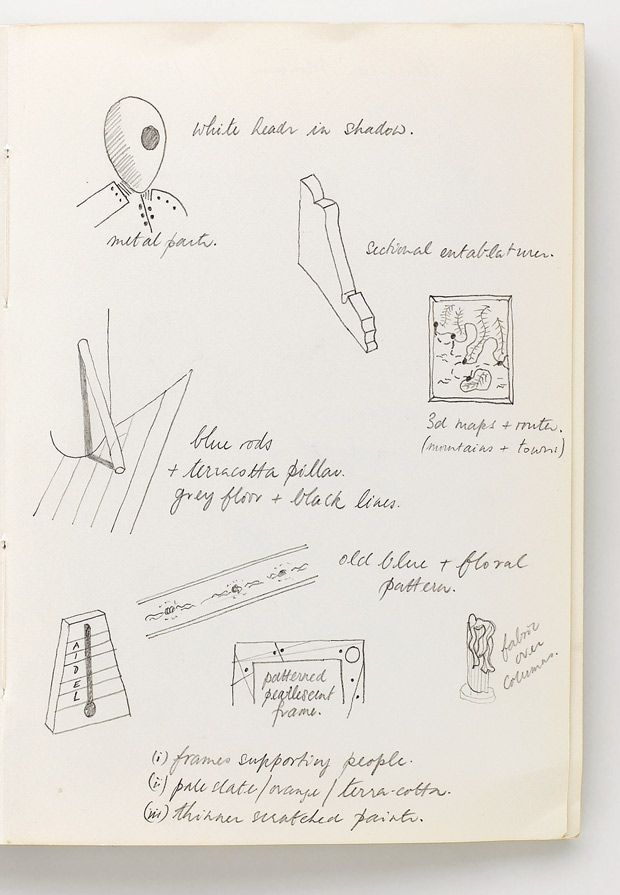 white heads in shadow.
metal parts.
sectional entablatures.
3d maps + routes.
(mountains + towns)
blue rods
+ terracotta pillar.
grey floor + black lines.
old blue + floral
pattern.
A
I
D
E
L
patterned
pearlescent
frame.
fabric
over
columns.
(i) frames supporting people.
(ii) pale slate/orange/terra-cotta.
(iii) thinner scratched paint.